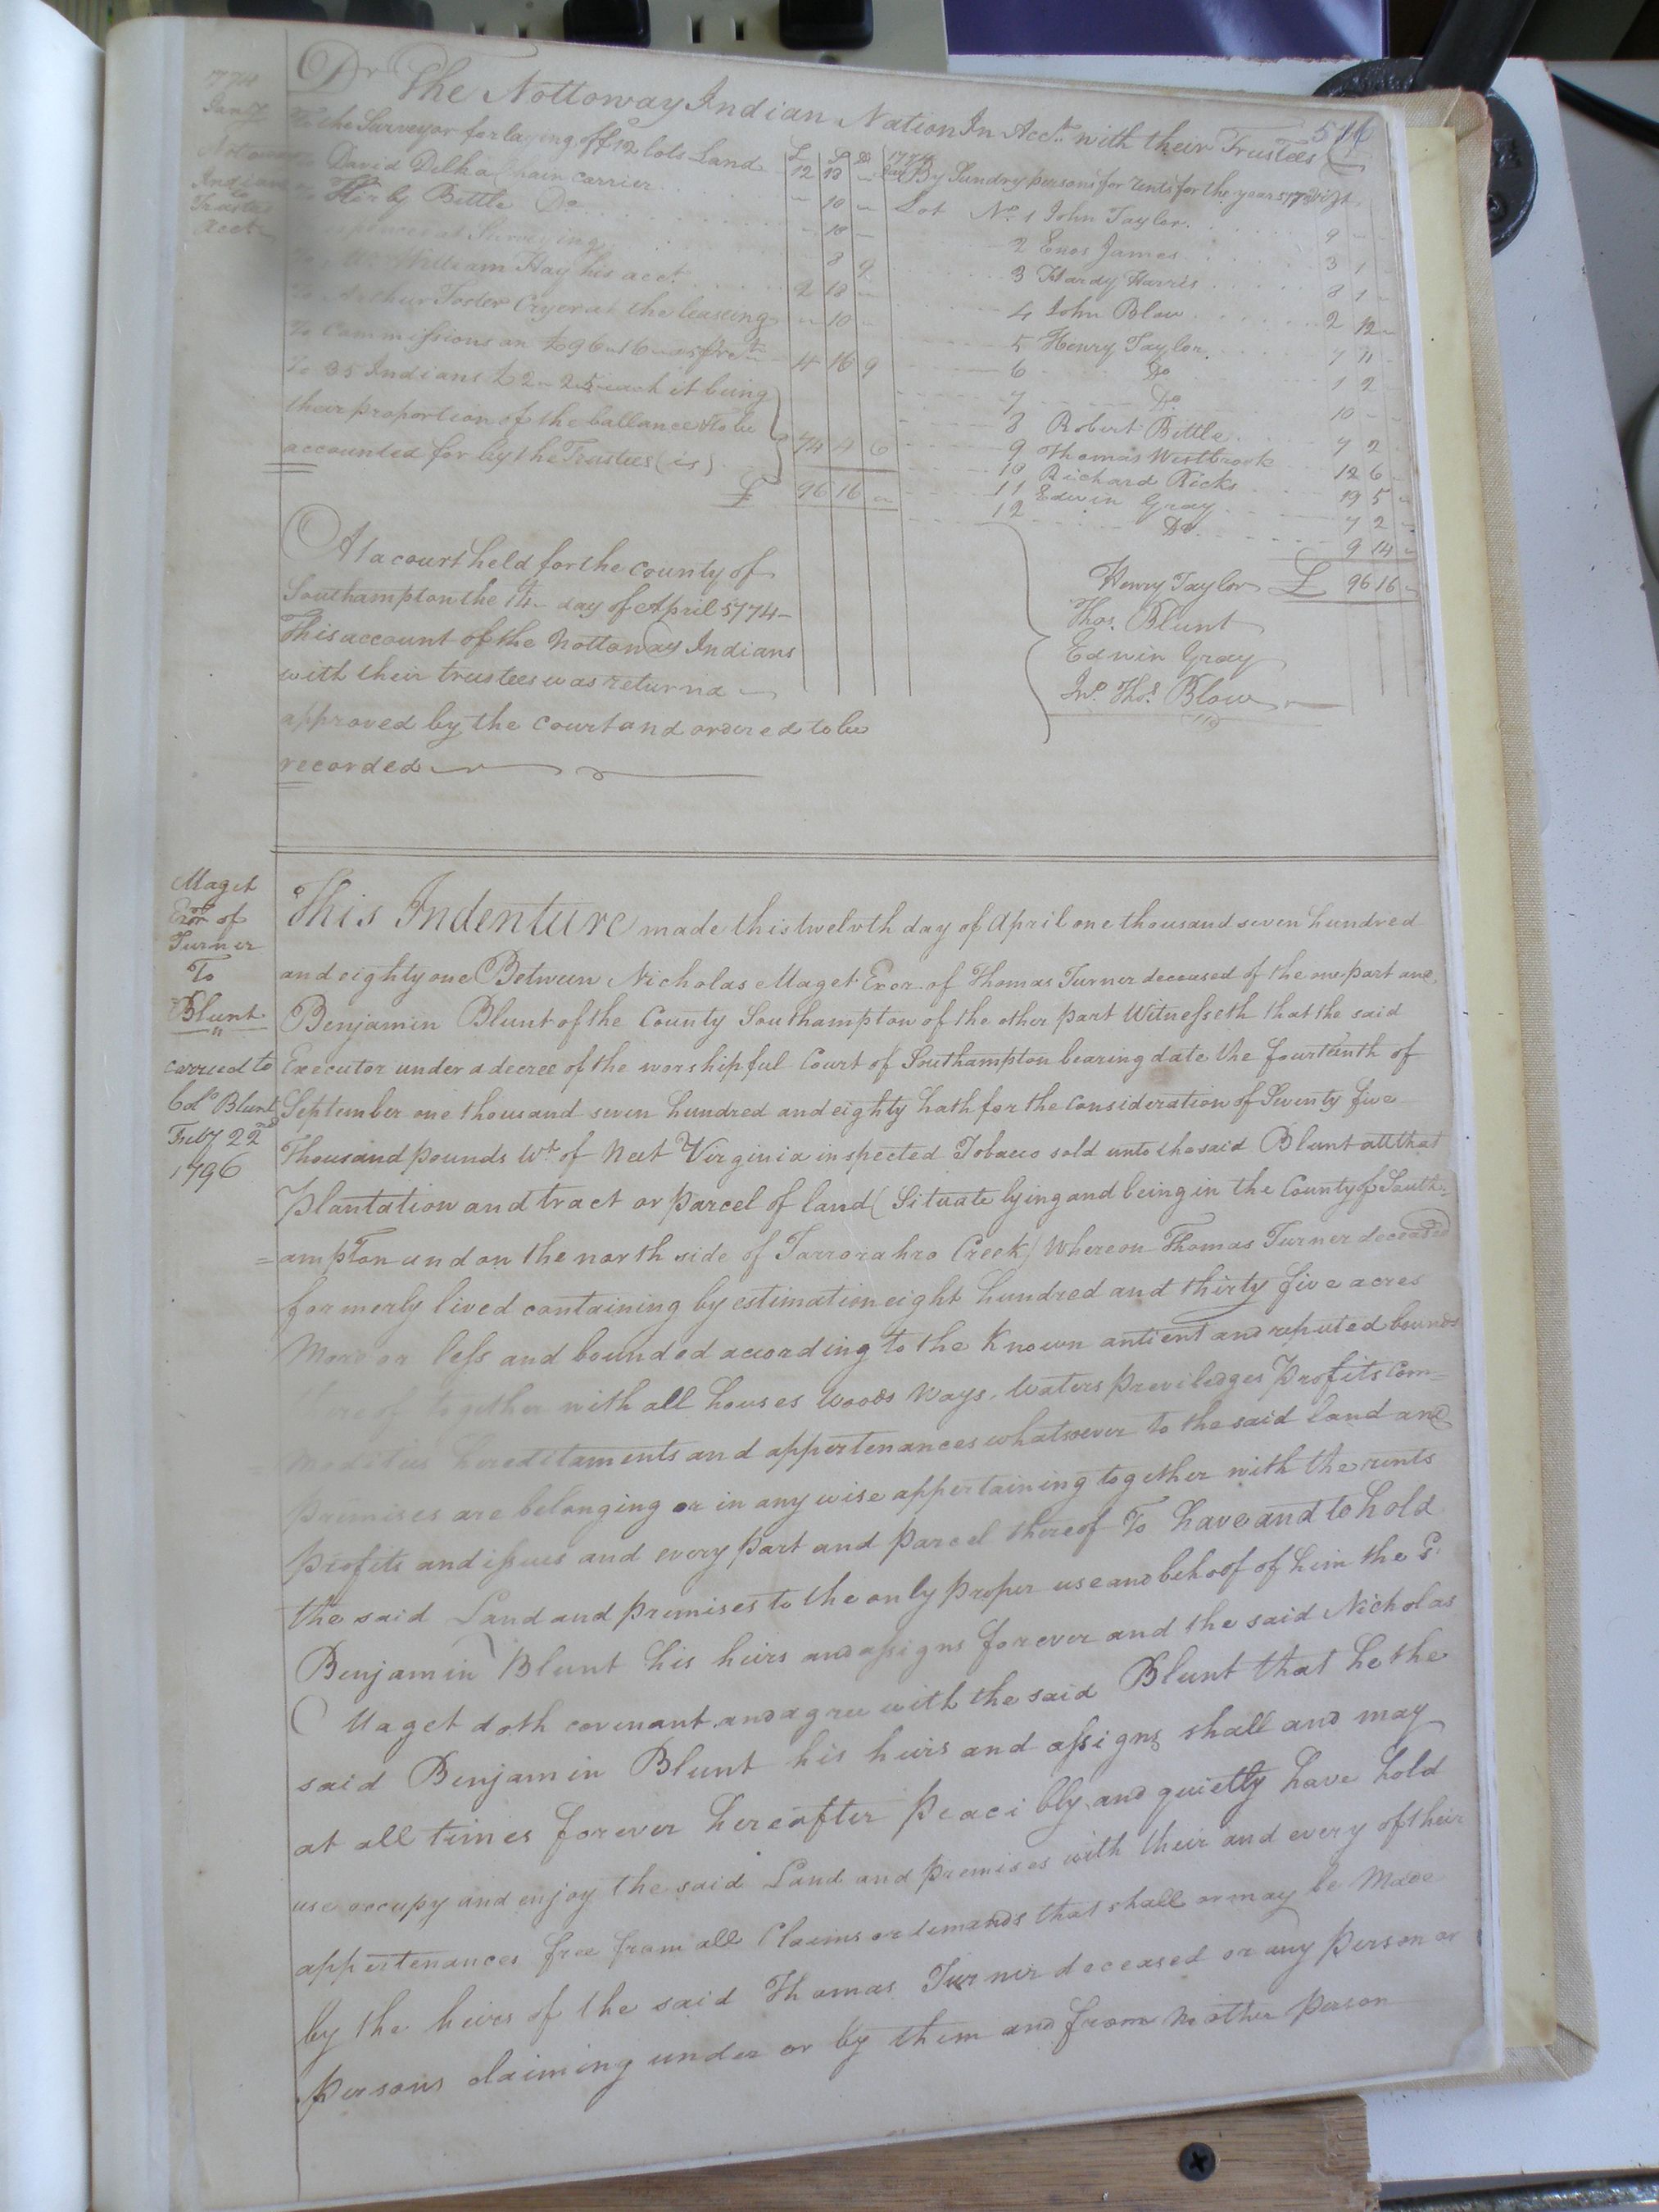 Dr The Nottoway Indian Nation In Acct. with their Trustees
1774
Jany
Nottoway
Indians
Trustees
Acct.
£ S D
To the Surveyor for laying off 12 lots Land 12 13 "
To David Delha Chain carrier " 10 "
To Kirby Bittle Do " 10 "
expences at Surveying 3 9
To Mr. William Hay his acct. 2 18 "
To Arthur Foster Cryer at the leaseing " 10 "
To Commissions on £96 " 16 " 4 16 9
To 35 Indians £2 " 2 " 5 each it being
their proportion of the ballance to be
accounted for by the Trustees (is) 74 4 6
£ 96 16 "
1774
By Sundry persons for rents for the year
Lot No. 1 John Taylor 9 " "
2 Enos James 3 1 "
3 Hardy Harris 8 1 "
4 John Blow 2 12 "
5 Henry Taylor 7 11 "
6 Do 1 2 "
7 Do 10 " "
8 Robert Bittle 7 2 "
9 Thomas Westbrook 12 6 "
10 Richard Ricks 19 5 "
11 Edwin Gray 7 2 "
12 Do 9 14 "
£ 96 16 "
Henry Taylor
Thos. Blunt
Edwin Gray
Jno. Thos. Blow
At a court held for the county of
Southampton the 14 day of April 1774
This account of the Nottoway Indians
with their trustees was returnd
approved by the court and ordered to be
recorded
Maget
Exor of
Turner
To
Blunt
carried to
Colo Blunt
Feby 22nd
1796
This Indenture made this twelvth day of April one thousand seven hundred
and eighty one Between Nicholas Maget Exor. of Thomas Turner deceased of the one part and
Benjamin Blunt of the County Southampton of the other part Witnesseth that the said
Executor under a decree of the worshipful Court of Southampton bearing date the fourteenth of
September one thousand seven hundred and eighty hath for the consideration of Seventy five
Thousand pounds Wt. of Neet Virginia inspected Tobacco sold unto the said Blunt all that
Plantation and tract or parcel of land (Situate lying and being in the County of South=
=ampton and on the north side of Tarrorahro Creek) Whereon Thomas Turner deceased
formerly lived containing by estimation eight hundred and thirty five acres
More or less and bounded according to the known antient and reputed bounds
thereof together with all houses woods ways, waters previledges Profits Com=
=modities hereditaments and appertenances whatsoever to the said land and
premises are belonging or in any wise appertaining together with the rents
profits and issues and every part and parcel thereof To have and to hold
the said Land and premises to the only proper use and behoof of him the sd.
Benjamin Blunt his heirs and assigns forever and the said Nicholas
Maget doth covenant and agree with the said Blunt that he the
said Benjamin Blunt his heirs and assigns shall and may
at all times forever hereafter peacibly and quietly have hold
use occupy and enjoy the said Land and premises with their and every of their
appertenances free from all Claims or demands that shall or may be made
by the heirs of the said Thomas Turner deceased or any person or
persons claiming under or by them and from no other person